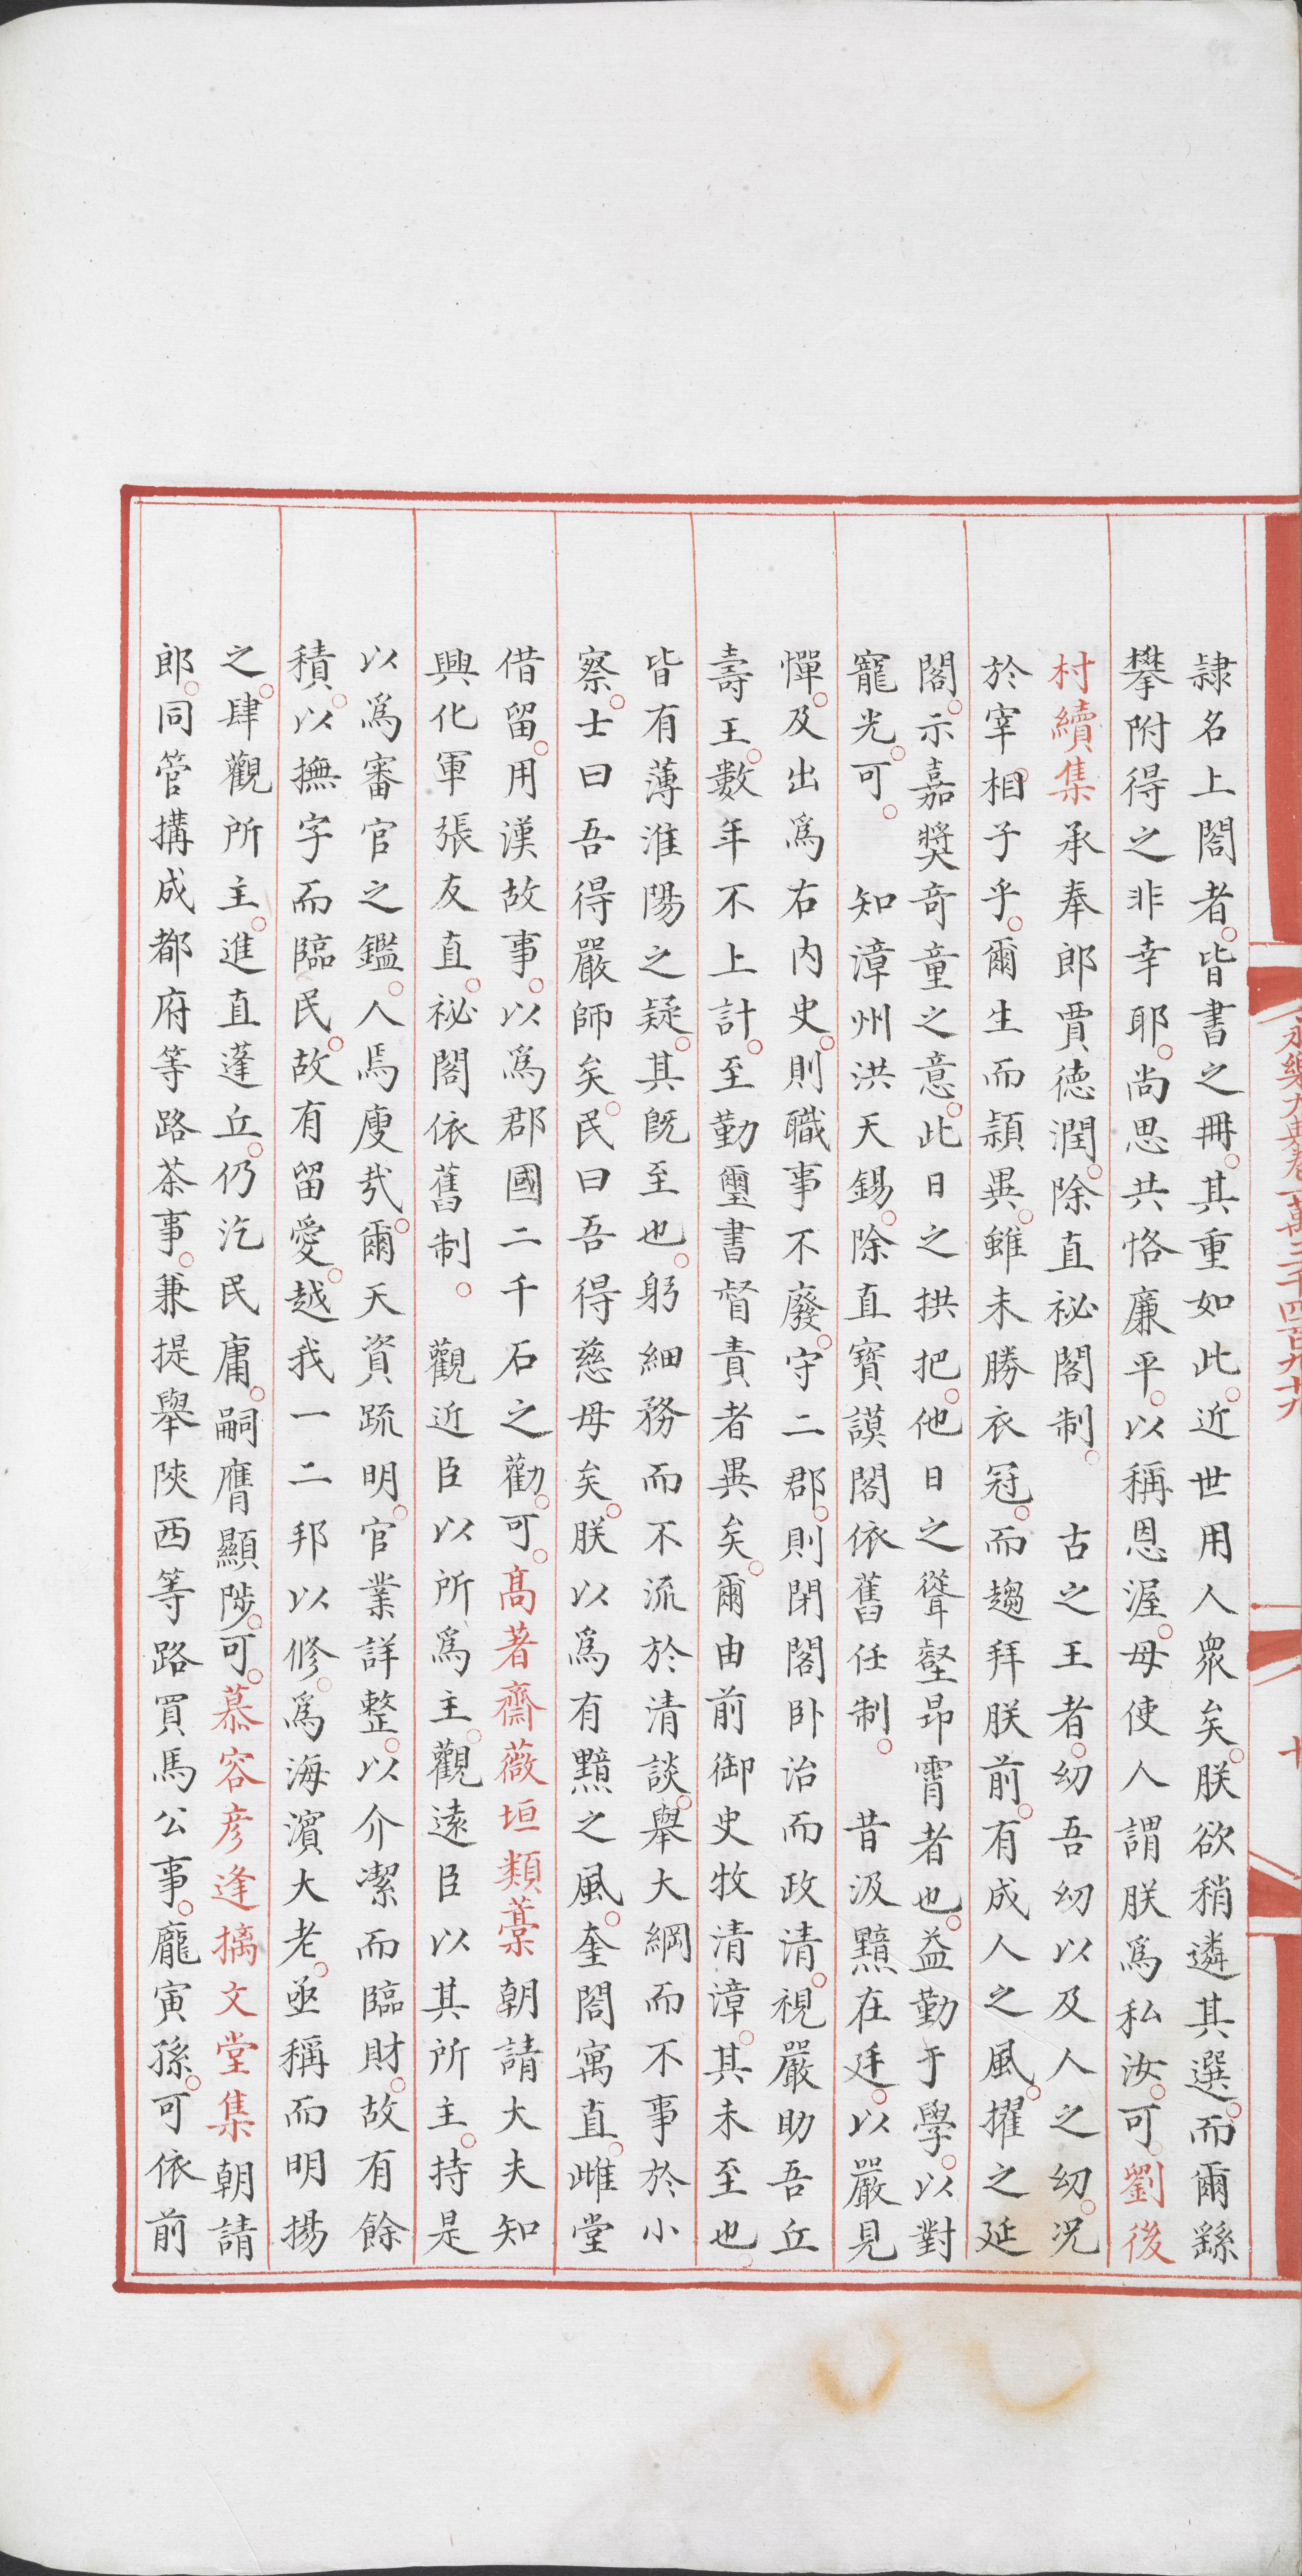 隷名上閤者皆書之冊其重如此近世用人衆矣朕欲稍遴其選而爾繇
攀附得之非幸耶尚思共恪廉平以稱恩渥毋使人謂朕爲私汝可劉後
村續集承奉郎賈德潤除直祕閣制 古之王者幼吾幼以及人之幼况
於宰相子乎爾生而穎異雖未勝衣冠而趨拜朕前有成人之風擢之延
閣示嘉奬奇童之意此日之拱把他日之聳壑昻霄者也益勤于學以對
寵光可 知漳州洪天錫除直寶謨閣依舊任制 昔汲黯在廷以嚴見
憚及出爲右内史則職事不廢守二郡則閉閣卧治而政清視嚴助吾丘
壽王數年不上計至勤璽書督責者異矣爾由前御史牧清漳其未至也
皆有薄淮陽之疑其旣至也躬細務而不流於清談舉大綱而不事於小
察士曰吾得嚴師矣民曰吾得慈母矣朕以爲有黯之風奎閣寓直雌堂
借留用漢故事以爲郡國二千石之勸可髙著齋薇垣類藁朝請大夫知
興化軍張友直祕閣依舊制 觀近臣以所爲主觀遠臣以其所主持是
以爲審官之鑑人焉廋哉爾天資疏明官業詳整以介潔而臨財故有餘
積以撫字而臨民故有留愛越我一二邦以修爲海濱大老亟稱而明揚
之肆觀所主進直蓬丘仍汔民庸嗣膺顯陟可慕容彦逢摛文堂集朝請
郎同管搆成都府等路茶事兼提舉陝西等路買馬公事龐寅孫可依前
永樂大典卷一萬三千四百九十九
十